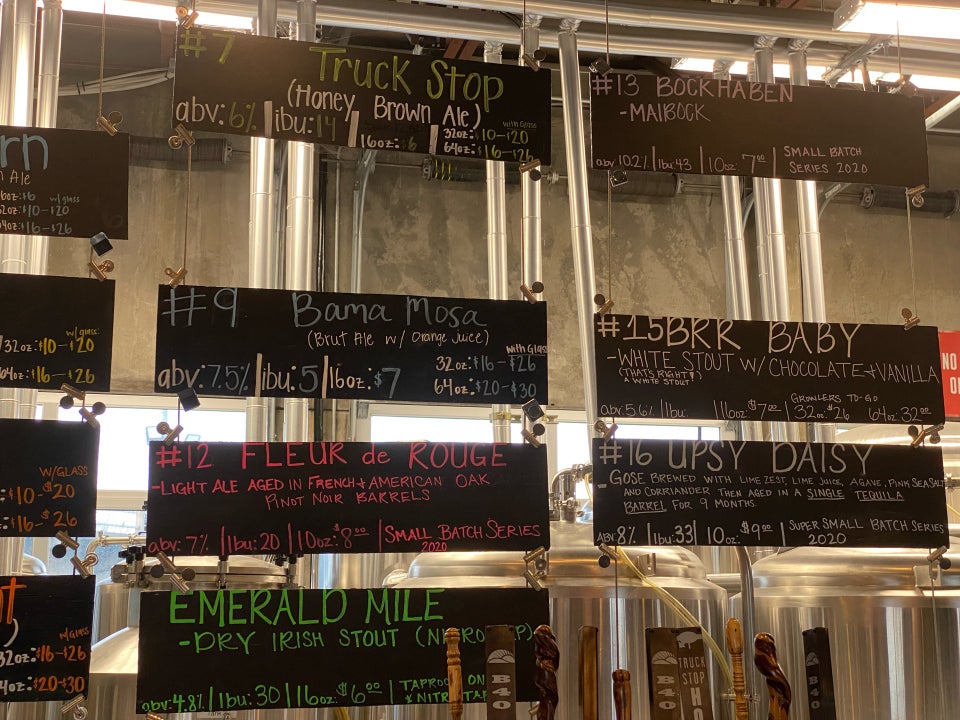 #7 Truck Stop
(Honey Brown Ale)
abv: 6% | ibu: 14 | 16oz: $6 | 32oz: $10-$20 with Glass
64oz: $16-$26
#13 BOCKHABEN
-MAIBOCK
abv 10.2% | Ibu 43 | 10oz $7.00 | SMALL BATCH
SERIES 2020
rn
Ale
16oz: $6 w/glass
32oz: $10-$20
64oz: $16-$26
w/glass:
32oz: $10-$20
64oz: $16-$26
#9 Bama Mosa
(Brut Ale w/ Orange Juice)
with Glass
abv: 7.5% | ibu: 5 | 16oz: $7 32oz: $16-$26
64oz: $20-$30
#15 BRR BABY
-WHITE STOUT W/ CHOCOLATE + VANILLA
(THAT'S RIGHT!
A WHITE STOUT)
GROWLERS TO-GO
ABV: 5.6% | Ibu: | 16oz $7.00 | 32oz $26 64oz 32.00
NO
W/GLASS
$10-$20
$16-$26
#12 FLEUR de ROUGE
-LIGHT ALE AGED IN FRENCH + AMERICAN OAK
PINOT NOIR BARRELS
abv: 7% | Ibu: 20 | 10oz: $8.00 | SMALL BATCH SERIES
2020
#16 UPSY DAISY
-GOSE BREWED WITH LIME ZEST, LIME JUICE, AGAVE, PINK SEA SALT
AND CORRIANDER THEN AGED IN A SINGLE TEQUILA
BARREL FOR 9 MONTHS.
ABV: 8% | Ibu: 33 | 10oz. $9.00 | SUPER SMALL BATCH SERIES
2020
w/GLASS
32oz: $16-$26
64oz: $20-$30
EMERALD MILE
-DRY IRISH STOUT (NITRO
abv: 4.8% | Ibu: 30 | 16oz $6.00 | TAPROOM ON
& NITRO TAP
B40
TRUCK
STOP
B40